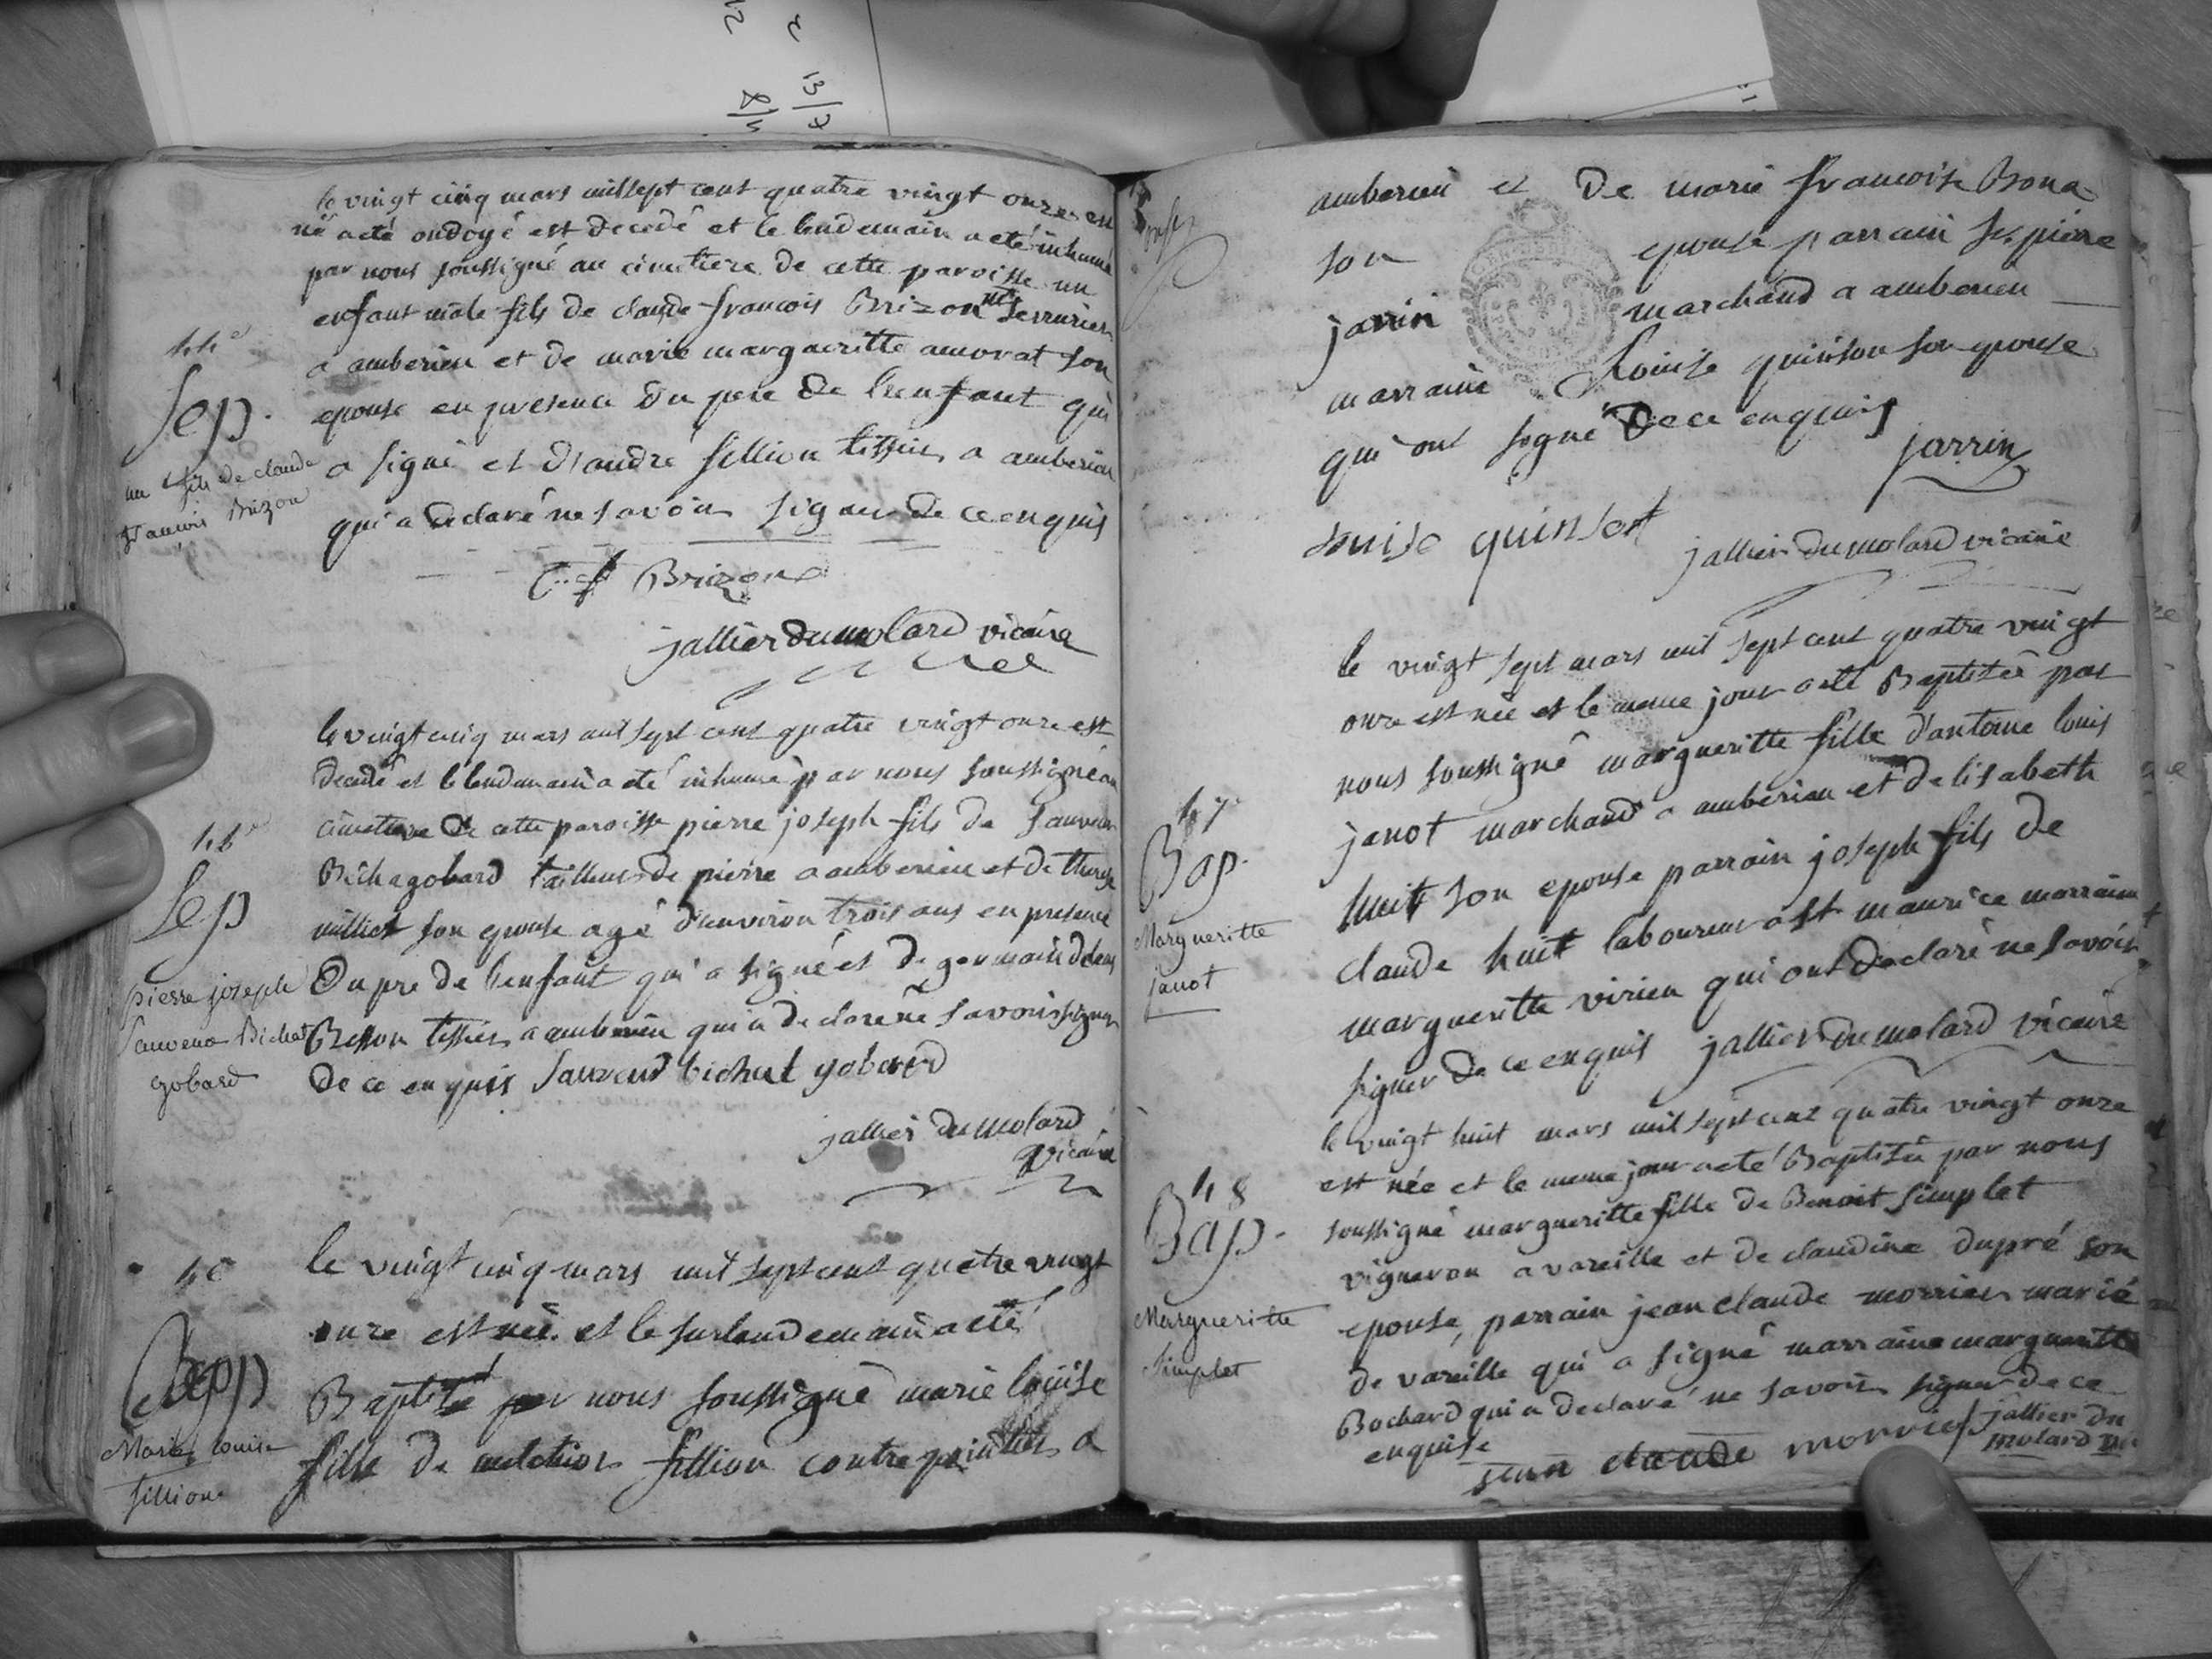 le vingt cinq mars mil sept cent quatre vingt onze est
né a eté ondoyé est decedé et le lendemain a eté inhumé
par nous soussigné au cimetiere de cette paroisse un
enfant mâle fils de claude francois Brizon me serrurier
a amberieu et de marie margueritte amorat son
epouse en presence du pere de l'enfant qui
a signé et d'andre fillion tissier a amberieu
qui a declaré ne savoir signer de ce enquis
44e
Sep.
un fils de claude
francois Brizon
Brizon
jallier du molard vicaire
le vingt cinq mars mil sept cent quatre vingt onze est
decedé et le lendemain a eté inhumé par nous soussigné au
cimetiere de cette paroisse pierre joseph fils de sauveur
Bichat gobard tailleur de pierre a amberieu et de therese
milliet son epouse agé d'environ trois ans en presence
Du pre de l'enfant qui a signé et de germain
Besson tissier a amberieu qui a declaré ne savoir signer
de ce enquis sauveur bichat gobard
Sep
pierre joseph
Sauveur Bichat
gobard
jallier du molard
vicaire
le vingt cinq mars mil sept cent quatre vingt
onze est née et le surlendemain a eté
Baptisé par nous soussigné marie louise
fille de melchior fillion contrepointier a
Bap
Marie louise
fillion
amberieu et De marie francoise Bona
son epouse parrain sr pierre
jarrin marchand a amberieu
marraine Louise quinson son epouse
qui ont signé De ce enquis
jarrin
louise quinson
jallier du molard vicaire
le vingt sept mars mil sept cent quatre vingt
onze est née et le meme jour a eté Baptisée par
nous soussigné margueritte fille d'antoine louis
janot marchand a amberieu et de lisabeth
huit son epouse parrain joseph fils de
claude huit laboureur a st maurice marraine
margueritte virieu qui ont declaré ne savoir
signer de ce enquis jallier du molard vicaire
47
Bap.
Margueritte
janot
le vingt huit mars mil sept cent quatre vingt onze
est née et le meme jour a eté Baptisée par nous
soussigné margueritte fille de Benoit simplet
vigneron a vareille et de claudine dupré son
epouse, parrain jean claude morrier marié
de vareille qui a signé marraine margueritte
Bochard qui a declaré ne savoir signer de ce
enquise
48
Bap.
Margueritte
simplet
jean claude morrier
jallier du
molard vic